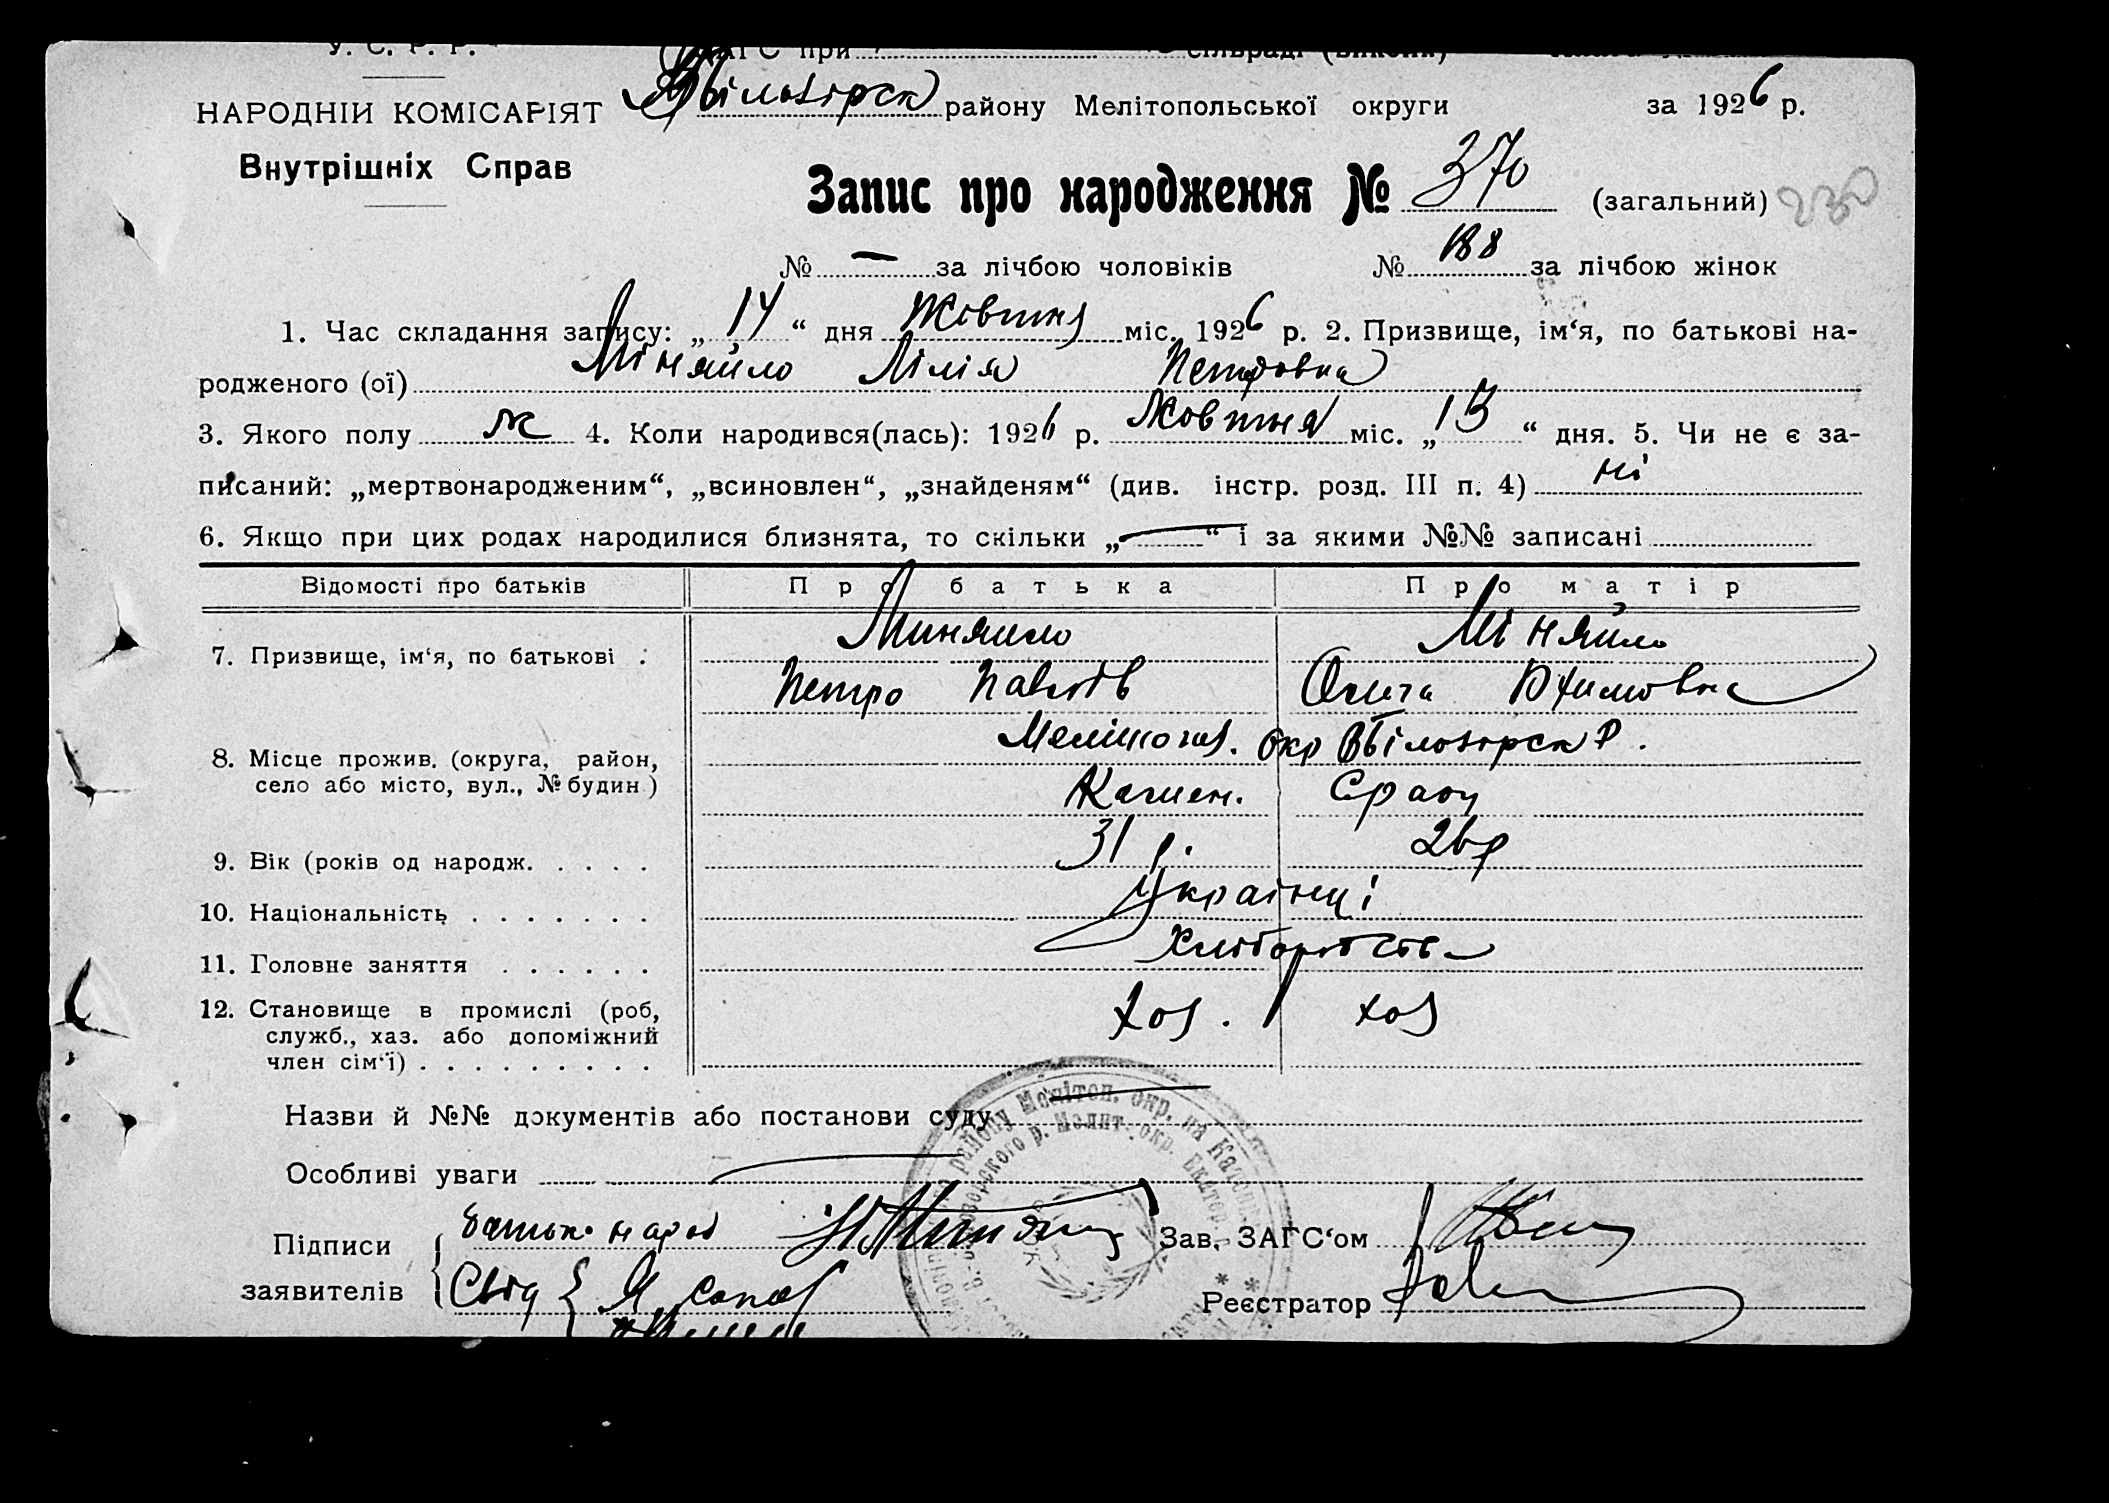 У. С. Р. Р.
ЗАГС при сільраді (виконк)
НАРОДНІЙ КОМІСАРІЯТ
Вбілозірск району Мелітопольської округи за 1926 р.
Внутрішніх Справ
Запис про народження № 370 (загальний) 230
№ — за лічбою чоловіків № 188 за лічбою жінок
1. Час складання запису: „14“ дня Жовтня міс. 1926 р. 2. Призвище, ім‘я, по батькові на-
родженого (ої) Міняйло Лілія Петровна
3. Якого полу ж 4. Коли народився(лась): 1926 р. Жовтня міс. „13“ дня. 5. Чи не є за-
писаний: „мертвонародженим“, „всиновлен“, „знайденям“ (див. інстр. розд. III п. 4) ні
6. Якщо при цих родах народилися близнята, то скільки „—“ і за якими №№ записані
Відомості про батьків Про батька Про матір
7. Призвище, ім‘я, по батькові Миняило Міняйло
Петро Павлов Ольга Юхимовна
8. Місце прожив. (округа, район, Мелітопол. окр Вбілозірск Р.
село або місто, вул., № будин.) Камен.
9. Вік (років од народж. 31 р. 26 р
10. Національність Українці
11. Головне заняття Хліборобства
12. Становище в промислі (роб, хоз. хоз
служб., хаз. або допоміжний
член сім‘ї)
Назви й №№ документів або постанови суду
Особливі уваги
Підписи батько народ Зав. ЗАГС‘ом
заявителів Свід Реєстратор
району Мелітоп. окр. на Катерин.
р. Мелит. окр. Екатер.